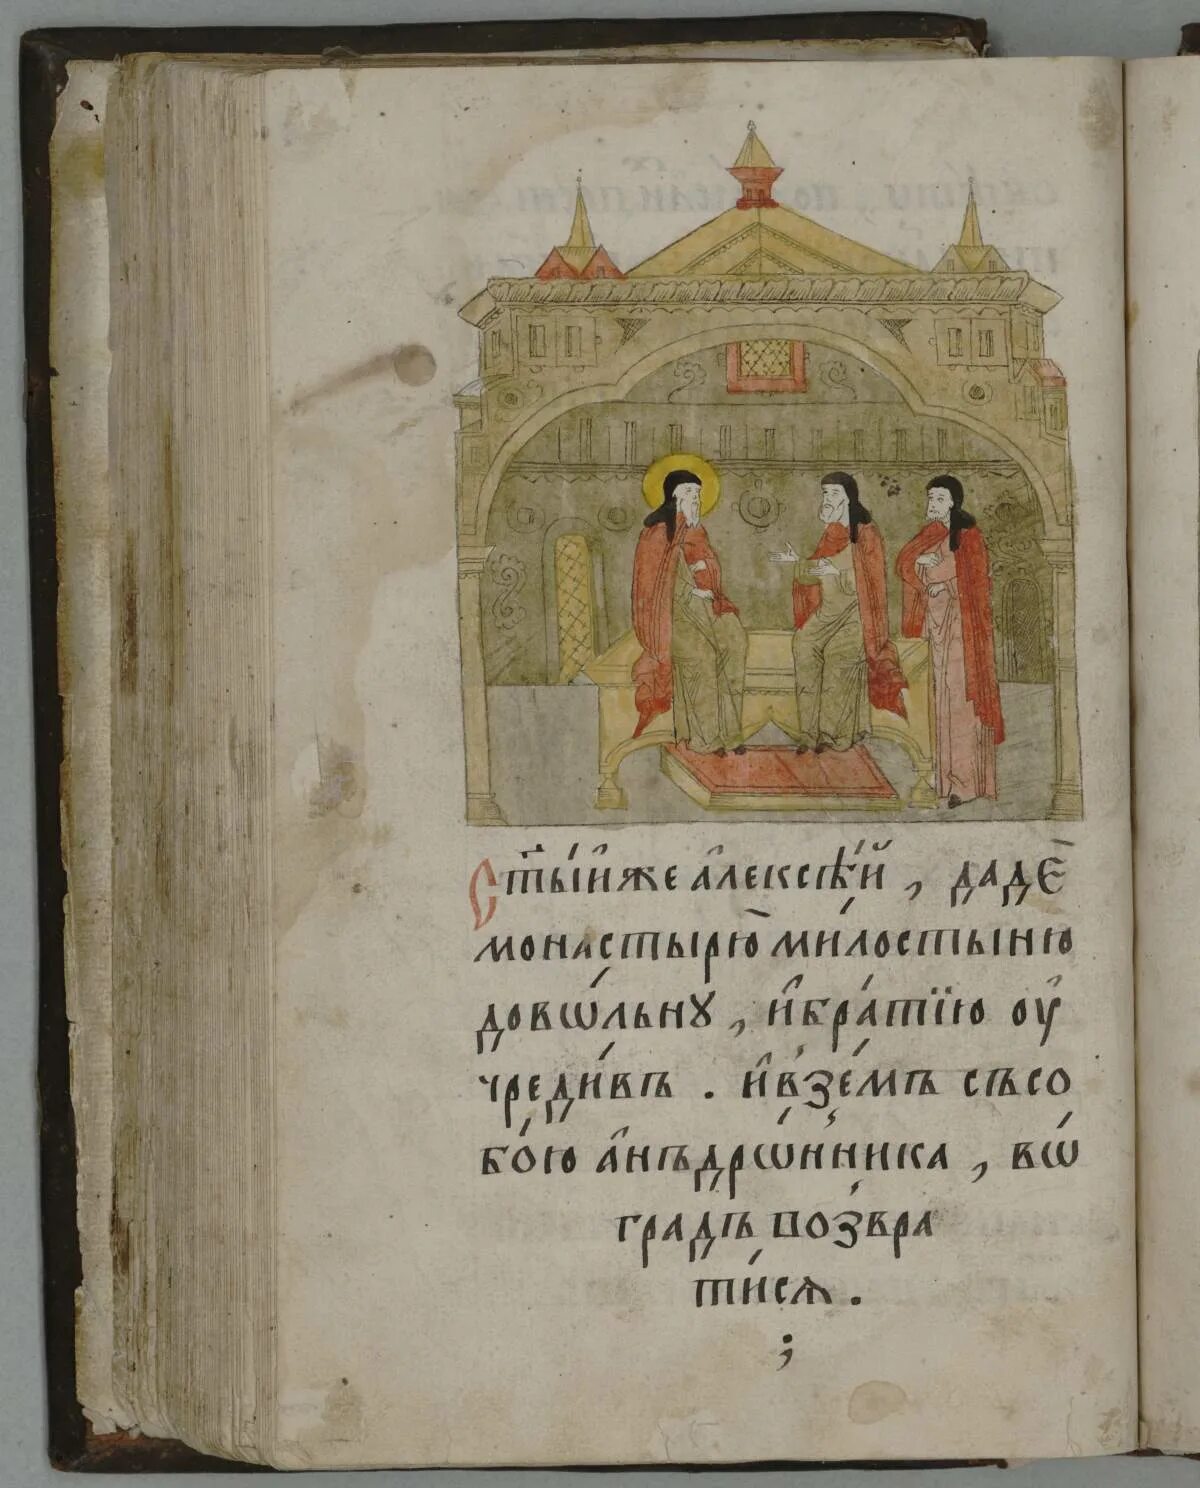 Ст҃ы́й же а҆леѯі́й , даде̑
монастырю̑ ми́лостыню
дово́льну , и҆бра́тїю оу҆
чреди́въ . и҆взе́мъ съсо
бо́ю а҆нъдро́нника , вѡ́
градъ возвра
ти́ся .
;